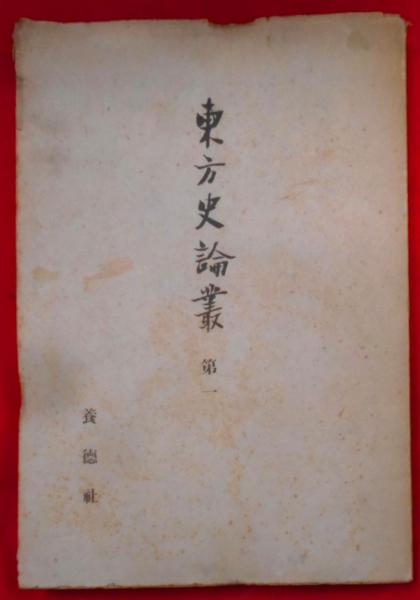 東方史論叢
第一
養德社